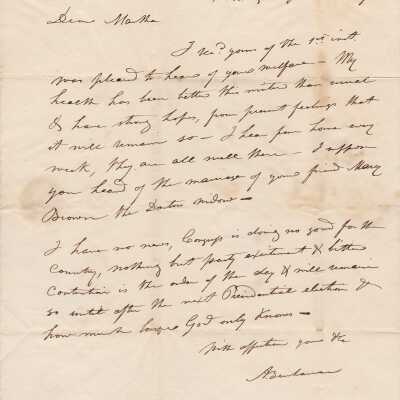 Dear Martha
I recd yours of the 1st inst.
was pleased to hear of your welfare – My
health has been better this winter than usual
& have strong hopes, from present feelings that
it will remain so – I hear from home every
week, they are all well there – I suppose
you heard of the marriage of your friend Mary
Brown the Doctors widow –
I have no news, Congress is doing no good for the
Country, nothing but party excitement & bitter
Contention is the order of the day & will remain
so until after the next Presidential election &
how much longer God only knows –
With affection yours &c